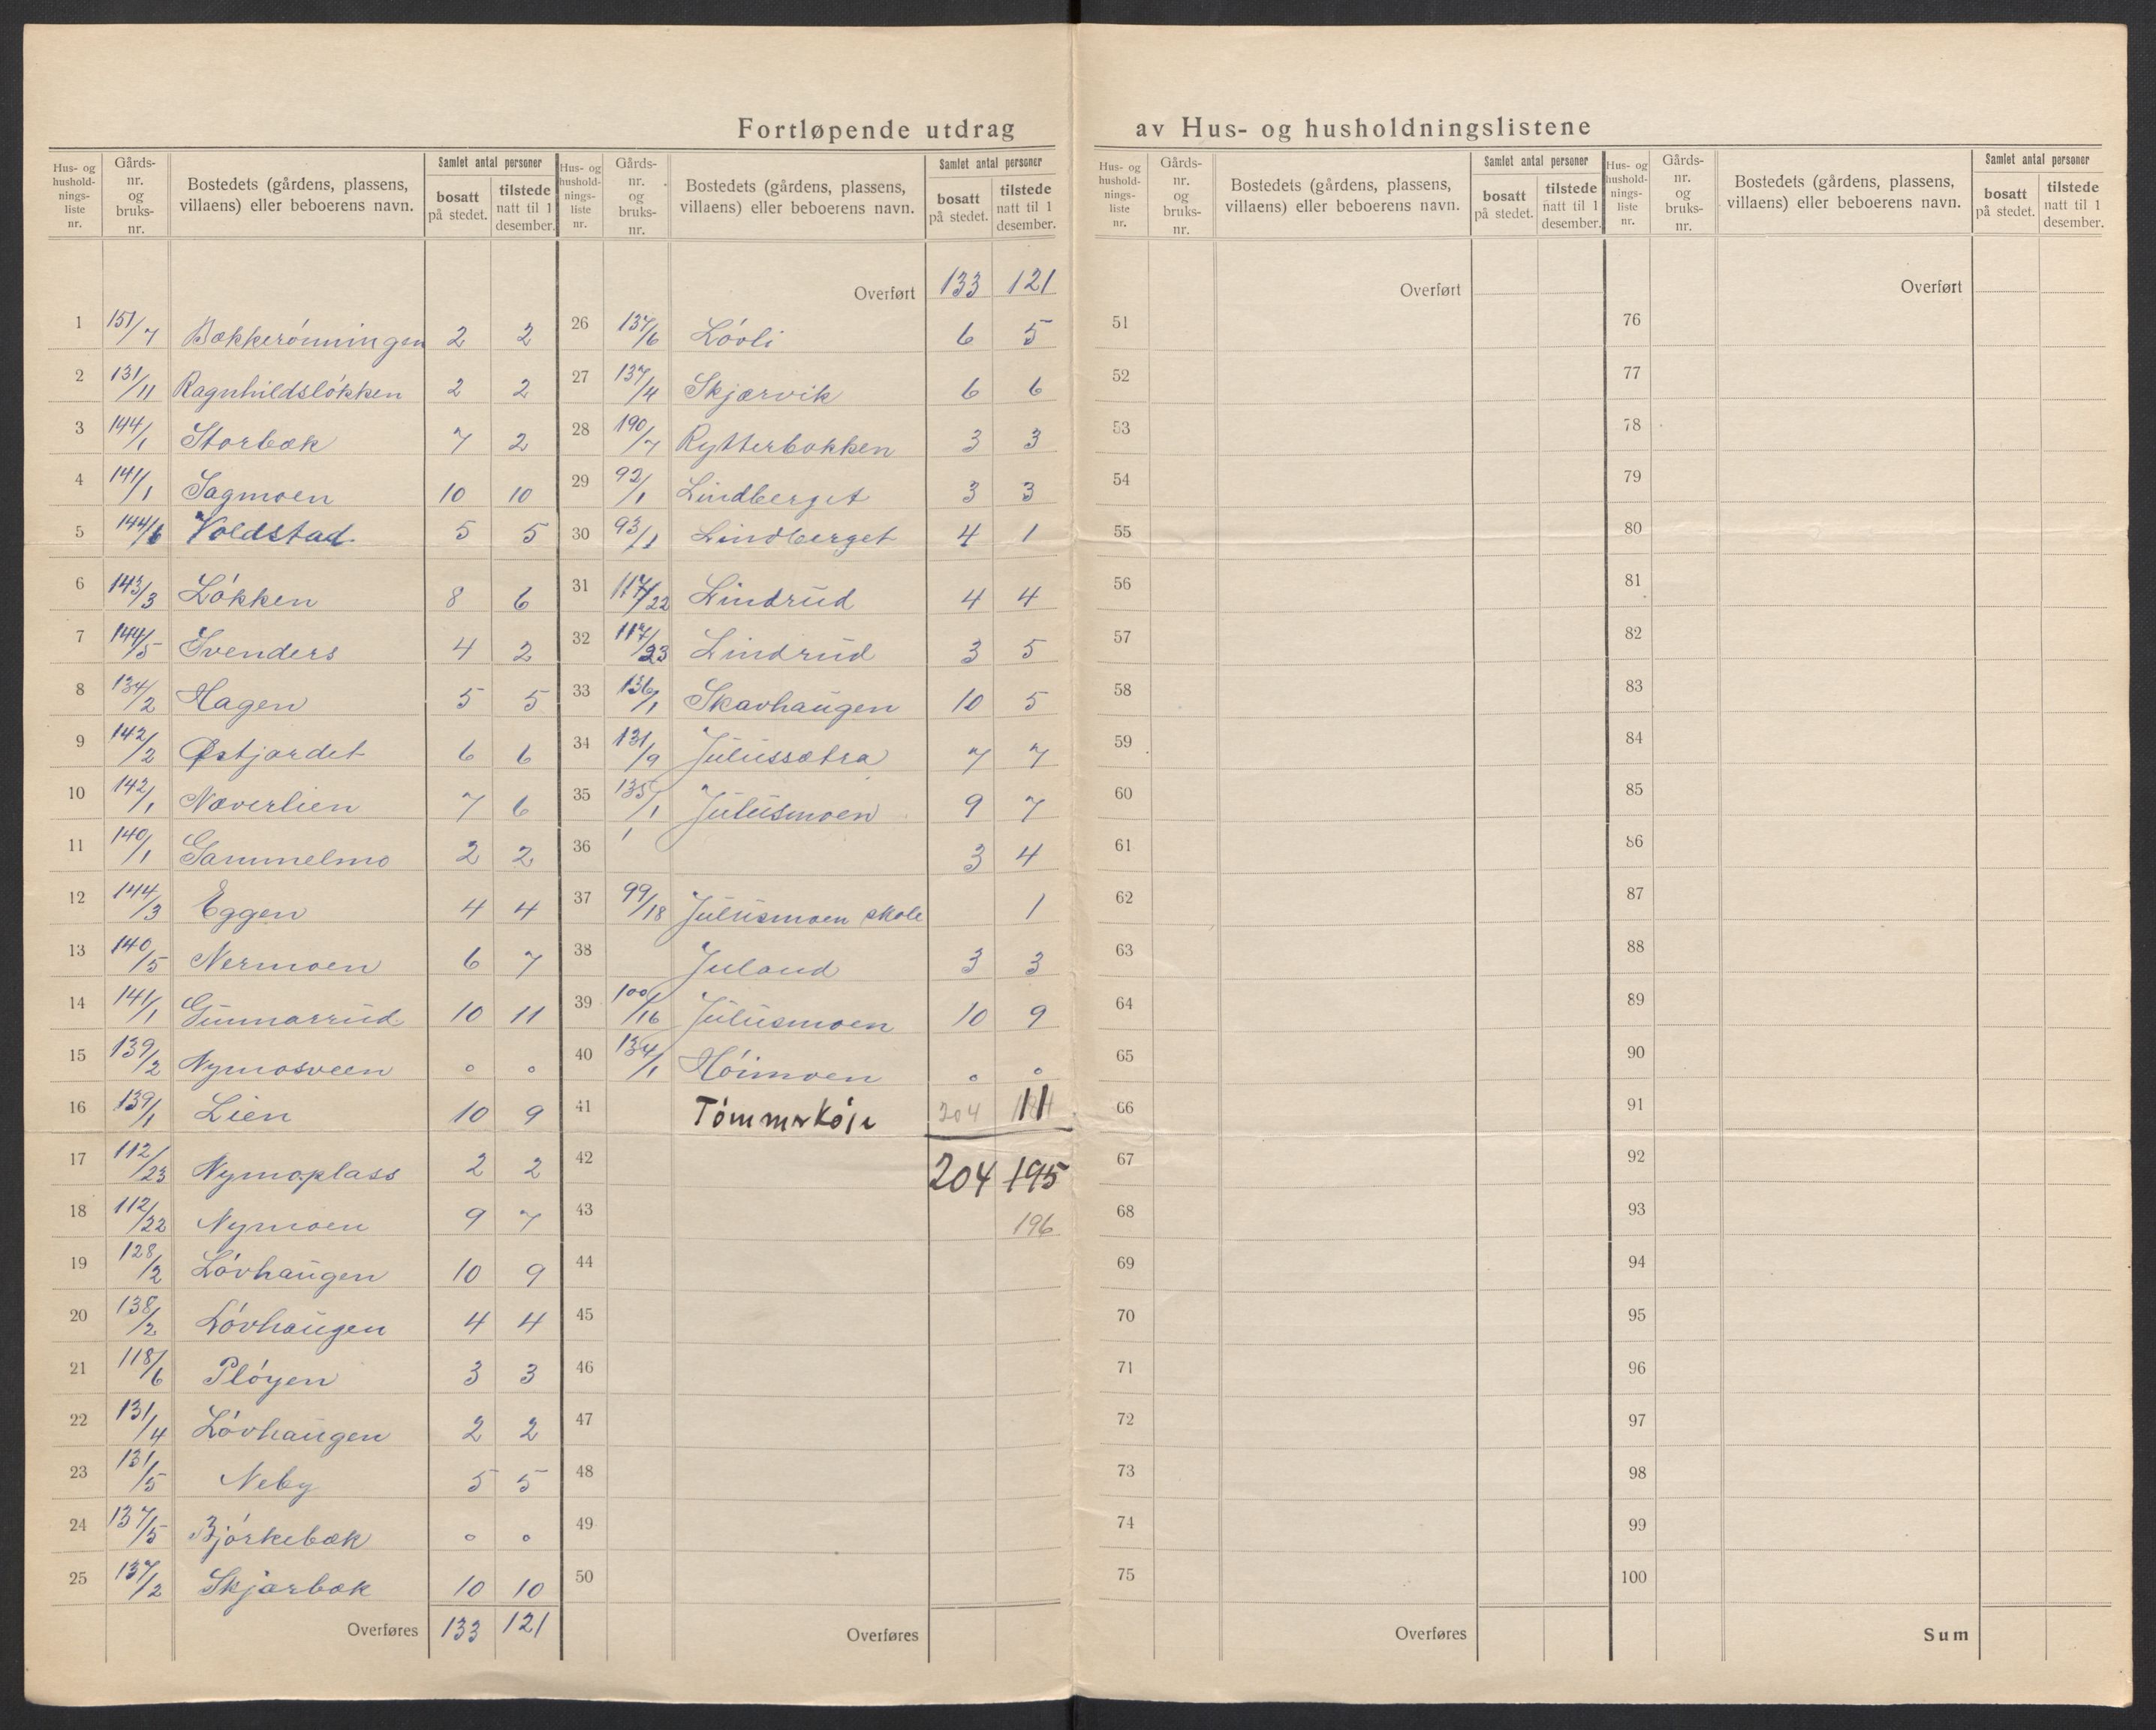 Fortløpende utdrag av Hus- og husholdningslistene
Hus- og husholdnings-liste nr. | Gårds-nr. og bruks-nr. | Bostedets (gårdens, plassens, villaens) eller beboerens navn. | Samlet antal personer bosatt på stedet. | tilstede natt til 1 desember.
1 151/7 Bækkerønningen 2 2
2 131/11 Ragnhildsløkken 2 2
3 144/1 Storbæk 7 2
4 141/1 Sagmoen 10 10
5 144/6 Voldstad. 5 5
6 143/3 Løkken 8 6
7 144/5 Svenders 4 2
8 134/2 Hagen 5 5
9 142/2 Østjordet 6 6
10 142/1 Næverlien 7 6
11 140/1 Gammelmo 2 2
12 144/3 Eggen 4 4
13 140/5 Nermoen 6 7
14 141/1 Gunnarrud 10 11
15 139/2 Nymosveen 0 0
16 139/1 Lien 10 9
17 112/23 Nymoplass 2 2
18 112/22 Nymoen 9 7
19 128/2 Løvhaugen 10 9
20 138/2 Løvhaugen 4 4
21 118/6 Pløyen 3 3
22 131/4 Løvhaugen 2 2
23 131/5 Neby 5 5
24 137/5 Bjørkebæk 0 0
25 137/2 Skjærbæk 10 10
Overføres 133 121
Hus- og husholdnings-liste nr. | Gårds-nr. og bruks-nr. | Bostedets (gårdens, plassens, villaens) eller beboerens navn. | Samlet antal personer bosatt på stedet. | tilstede natt til 1 desember.
Overført 133 121
26 137/6 Løvli 6 5
27 137/4 Skjærvik 6 6
28 190/7 Rytterbakken 3 3
29 92/1 Lindberget 3 3
30 93/1 Lindberget 4 1
31 117/22 Lindrud 4 4
32 117/23 Lindrud 3 5
33 136/1 Skavhaugen 10 5
34 131/9 Julussætra 7 7
35 135/1 Julusmoen 9 7
36 3 4
37 99/18 Julusmoen skole 1
38 Juland 3 3
39 100/16 Julusmoen 10 9
40 134/1 Høimoen 0 0
41 Tømmerkøie 204 11
42 204 195
43 196
44
45
46
47
48
49
50
Overføres
Hus- og husholdnings-liste nr. | Gårds-nr. og bruks-nr. | Bostedets (gårdens, plassens, villaens) eller beboerens navn. | Samlet antal personer bosatt på stedet. | tilstede natt til 1 desember.
Overført
51
52
53
54
55
56
57
58
59
60
61
62
63
64
65
66
67
68
69
70
71
72
73
74
75
Overføres
Hus- og husholdnings-liste nr. | Gårds-nr. og bruks-nr. | Bostedets (gårdens, plassens, villaens) eller beboerens navn. | Samlet antal personer bosatt på stedet. | tilstede natt til 1 desember.
Overført
76
77
78
79
80
81
82
83
84
85
86
87
88
89
90
91
92
93
94
95
96
97
98
99
100
Sum